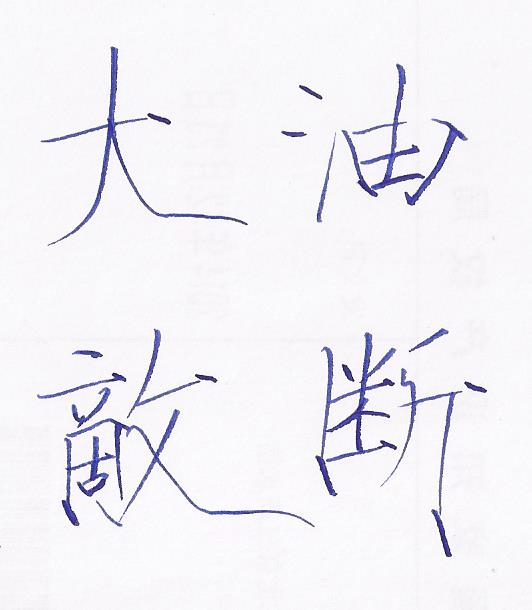 油断
大敵